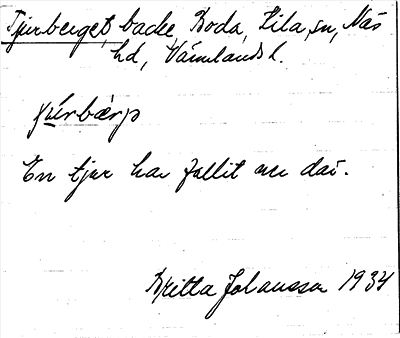 Tjurberget, backe, Boda, Lila, sn, Näs
hd, Värmlands l.
En tjur har fallit ner där.
Britta Johansson 1934